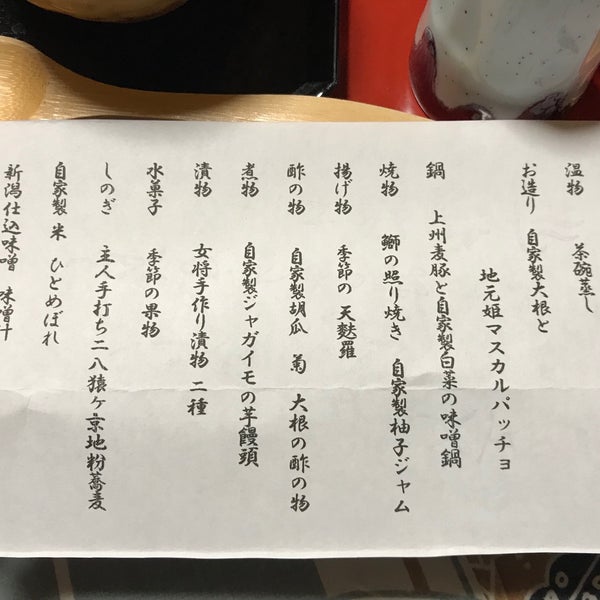 温物 茶碗蒸し
お造り 自家製大根と
地元姫マスカルパッチョ
鍋 上州麦豚と自家製白菜の味噌鍋
焼物 鰤の照り焼き 自家製柚子ジャム
揚げ物 季節の天麩羅
酢の物 自家製胡瓜 菊 大根の酢の物
煮物 自家製ジャガイモの芋饅頭
漬物 女将手作り漬物二種
水菓子 季節の果物
しのぎ 主人手打ち二八猿ヶ京地粉蕎麦
自家製 米 ひとめぼれ
新潟仕込味噌 味噌汁